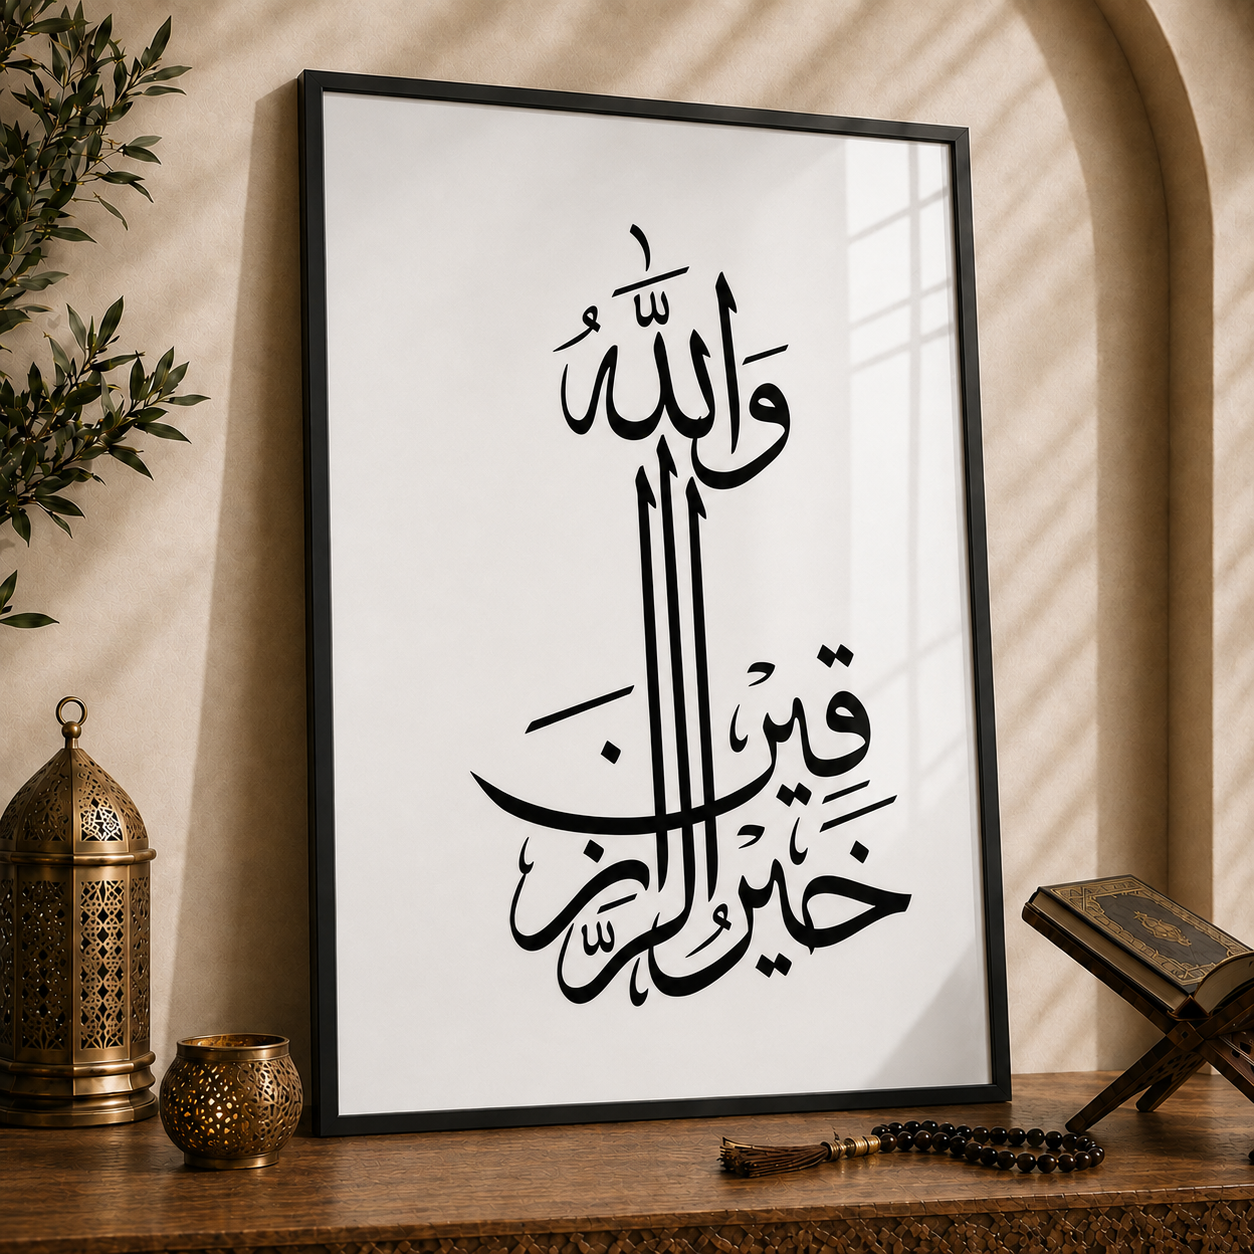 وَاللَّهُ
خَيْرُ الرَّازِقِينَ